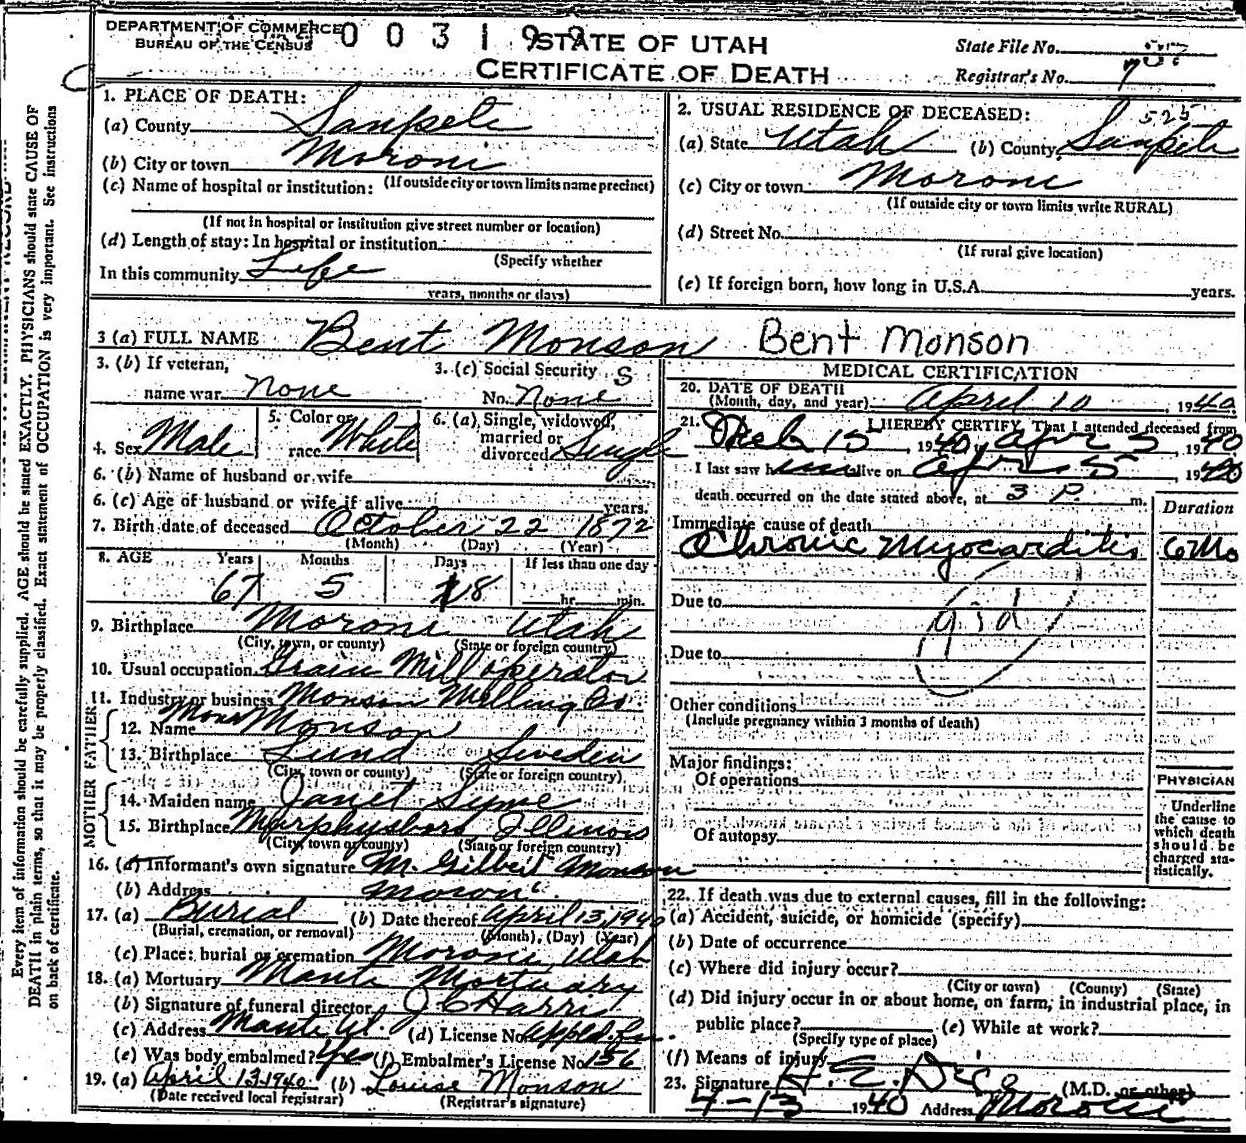 DEPARTMENT OF COMMERCE
BUREAU OF THE CENSUS
0 0 3 1 9
STATE OF UTAH
CERTIFICATE OF DEATH
State File No.
Registrar's No. 7
1. PLACE OF DEATH:
(a) County Sanpete
(b) City or town Moroni
(If outside city or town limits name precinct)
(c) Name of hospital or institution:
(If not in hospital or institution give street number or location)
(d) Length of stay: In hospital or institution
(Specify whether
In this community Life
years, months or days)
2. USUAL RESIDENCE OF DECEASED: 525
(a) State Utah (b) County Sanpete
(c) City or town Moroni
(If outside city or town limits write RURAL)
(d) Street No.
(If rural give location)
(e) If foreign born, how long in U.S.A. years.
3 (a) FULL NAME Bent Monson Bent Monson
3. (b) If veteran, name war none
3. (c) Social Security No. None S
4. Sex Male
5. Color or race White
6. (a) Single, widowed, married or divorced Single
6. (b) Name of husband or wife
6. (c) Age of husband or wife if alive years.
7. Birth date of deceased October 22 1872
(Month) (Day) (Year)
8. AGE Years Months Days If less than one day
67 5 18 hr. min.
9. Birthplace Moroni Utah
(City, town, or county) (State or foreign country)
10. Usual occupation Grain Mill operator
11. Industry or business Monson Milling Co.
FATHER
12. Name Mons Monson
13. Birthplace Lund Sweden
(City, town or county) (State or foreign country)
MOTHER
14. Maiden name Janet Syme
15. Birthplace Murphysboro, Illinois
(City, town or county) (State or foreign country)
16. (a) Informant's own signature M. Gilbert Monson
(b) Address Moroni
17. (a) Burial (b) Date thereof April 13, 1940
(Burial, cremation, or removal) (Month), (Day) (Year)
(c) Place: burial or cremation Moroni, Utah
18. (a) Mortuary Manti Mortuary
(b) Signature of funeral director J C Harris
(c) Address Manti Ut. (d) License No. appld. for.
(e) Was body embalmed? Yes (f) Embalmer's License No. 156
19. (a) April 13-1940 (b) Louise Monson
(Date received local registrar) (Registrar's signature)
MEDICAL CERTIFICATION
20. DATE OF DEATH
(Month, day, and year) April 10, 1940
21. I HEREBY CERTIFY, That I attended deceased from
Feb 15, 1940, Apr 5, 1940
I last saw him alive on Apr 5 1940
death occurred on the date stated above, at 3 P. m.
Duration
Immediate cause of death
Chronic Myocarditis 6 Mo
Due to
Due to
Other conditions
(Include pregnancy within 3 months of death)
Major findings:
Of operations
Of autopsy
PHYSICIAN
Underline
the cause to
which death
should be
charged sta-
tistically.
22. If death was due to external causes, fill in the following:
(a) Accident, suicide, or homicide (specify)
(b) Date of occurrence
(c) Where did injury occur?
(City or town) (County) (State)
(d) Did injury occur in or about home, on farm, in industrial place, in
public place? (e) While at work?
(Specify type of place)
(f) Means of injury
23. Signature H. E. (M.D. or other)
4-13 1940 Address Moroni
Every item of information should be carefully supplied. AGE should be stated EXACTLY. PHYSICIANS should state CAUSE OF
DEATH in plain terms, so that it may be properly classified. Exact statement of OCCUPATION is very important. See instructions
on back of certificate.